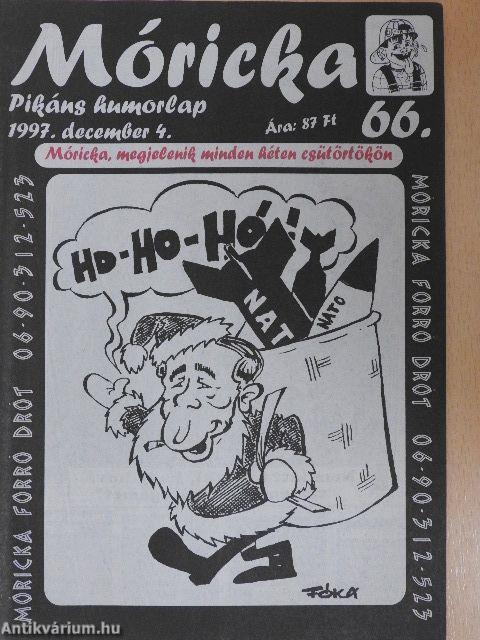 Móricka
Pikáns humorlap
1997. december 4.
Ára: 87 Ft
66.
Móricka, megjelenik minden héten csütörtökön
MÓRICKA FORRÓ DRÓT 06-90-312-523
MÓRICKA FORRÓ DRÓT 06-90-312-523
HO-HO-HÓ!
NAT
NATO
FÓKA
Antikvárium.hu